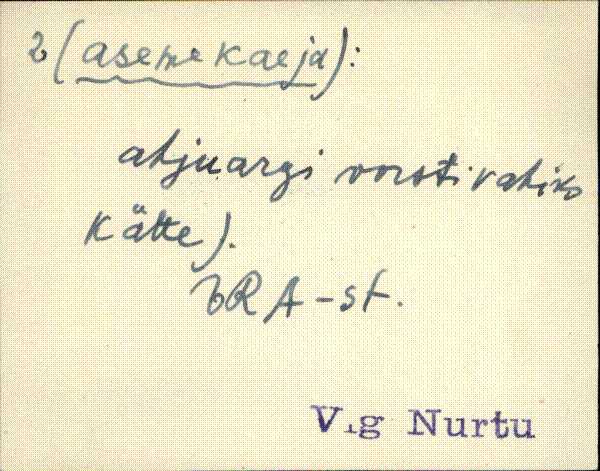 2 (asemekaeja):
ahjuargi vorsti vahiks
kätte).
ERA-st.
V.g Nurtu